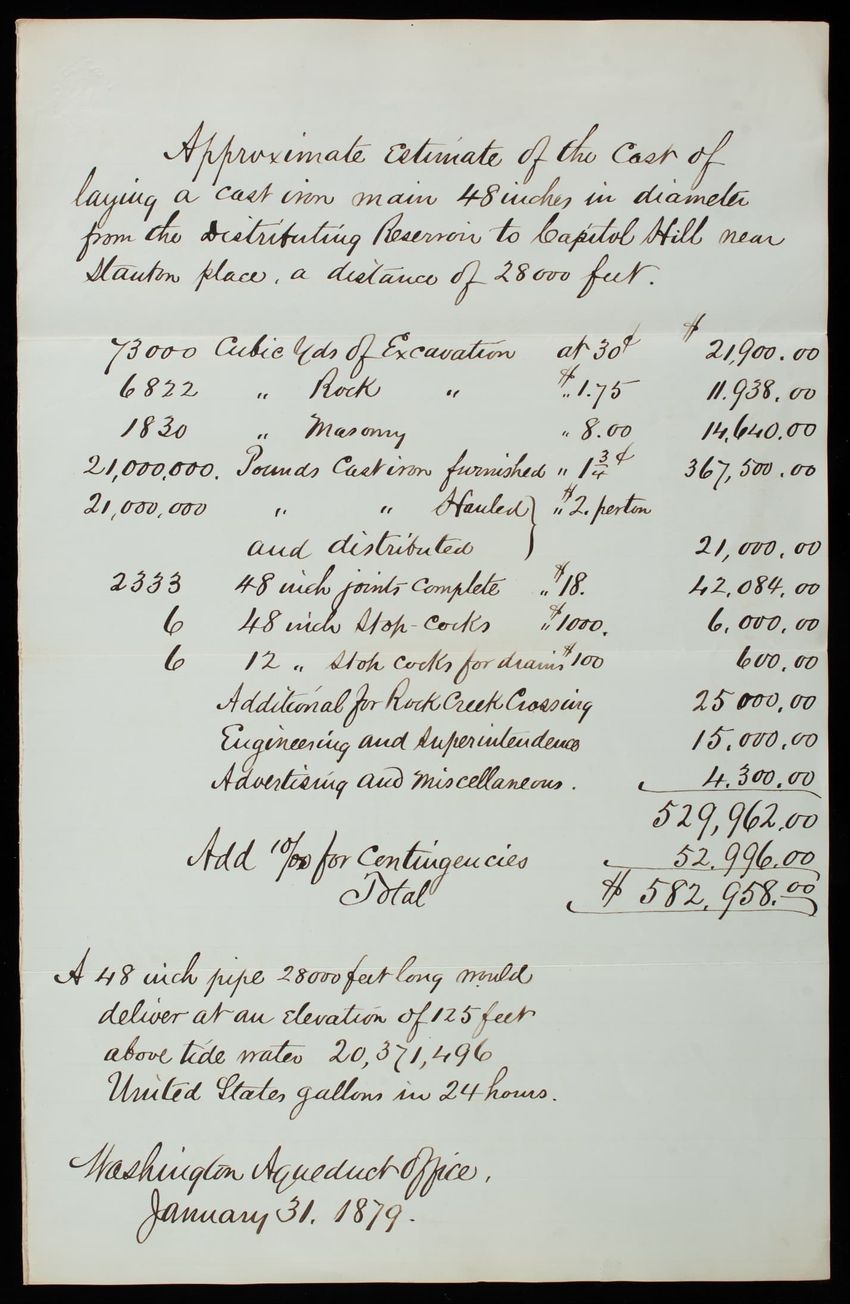 Approximate Estimate of the Cost of
laying a cast iron main 48 inches in diameter
from the Distributing Reservoir to Capitol Hill near
Stanton place, a distance of 28000 feet.
$
73000 Cubic Yds of Excavation at 30¢ 21,900.00
6822 " Rock " "$1.75 11.938.00
1830 " Masonry " 8.00 14,640.00
21,000,000. Pounds Cast iron furnished " 1 3/4 ¢ 367,500.00
21,000,000 " " Hauled } "$2. per ton
and distributed 21,000.00
2333 48 inch joints complete "$18. 42.084.00
6 48 inch Stop-cocks "$1000. 6.000.00
6 12 " Stop cocks for drains "$100 600.00
Additional for Rock Creek Crossing 25000.00
Engineering and Superintendence 15.000.00
Advertising and Miscellaneous. 4.300.00
529,962.00
Add 10/00 for Contingencies 52.996.00
Total $ 582.958.00
A 48 inch pipe 28000 feet long would
deliver at an elevation of 125 feet
above tide water 20,371,496
United States gallons in 24 hours.
Washington Aqueduct Office,
January 31. 1879.